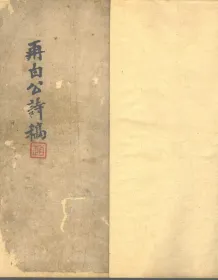 再由公詩稿